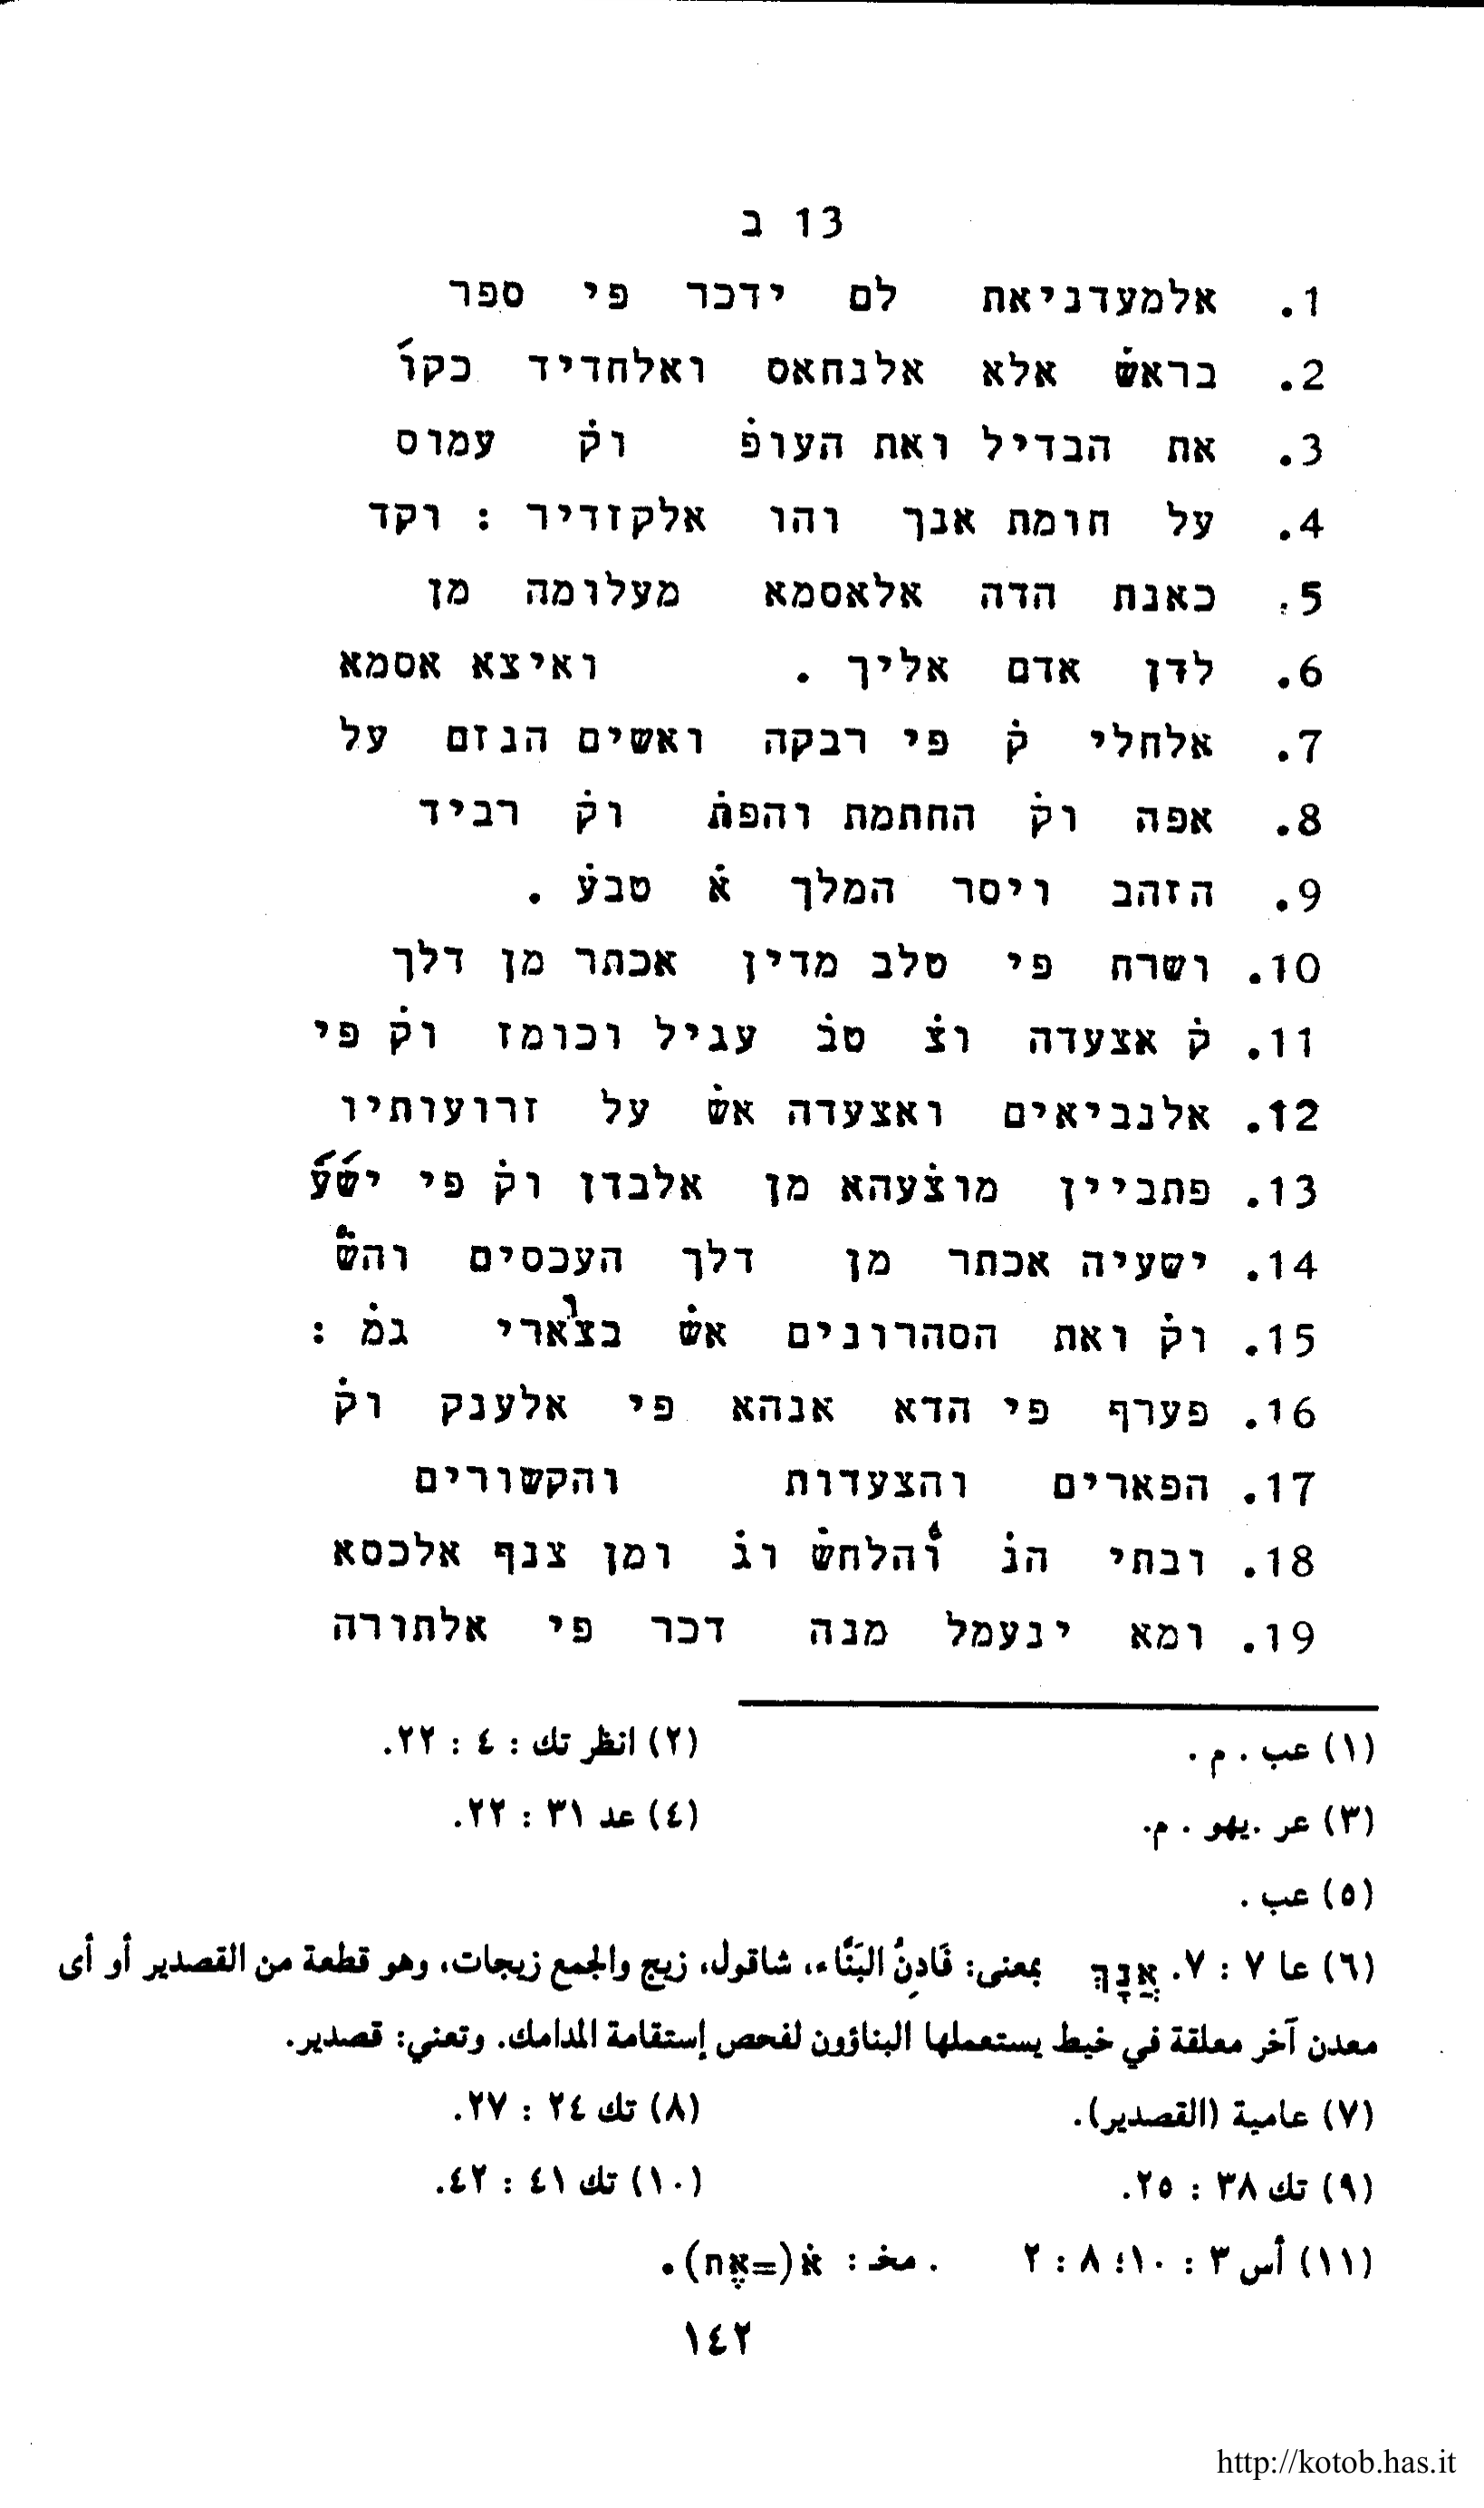 13 ב
1. אלמעדניאת לם ידכר פי ספר
2. בראש̇ אלא אלנחאס ואלחדיד כקו̇
3. את הבדיל ואת העופ̇ וק̇ עמוס
4. על חומת אנך והו אלקזדיר : וקד
5. כאנת הדה אלאסמא מעלומה מן
6. לדן אדם אליך . ואיצא אסמא
7. אלחלי ק̇ פי רבקה ואשים הנזם על
8. אפה וק̇ החתמת והפת̇ וק̇ רביד
9. הזהב ויסר המלך א̇ טבע̇ .
10. ושרח פי סלב מדין אכתר מן דלך
11. ק̇ אצעדה וצ̇ טב̇ עגיל וכומז וק̇ פי
12. אלנביאים ואצעדה אש̇ על זרועותיו
13. פתביין מוצ̇עהא מן אלבדן וק̇ פי ישע̇
14. ישעיה אכתר מן דלך העכסים והש̇
15. וק̇ ואת הסהרונים אש̇ בצ̇וארי גמ̇ :
16. פערף פי הדא אנהא פי אלענק וק̇
17. הפארים והצעדות והקשורים
18. ובתי הנ̇ והלחש̇ וג̇ ומן צנף אלכסא
19. ומא ינעמל מנה דכר פי אלתורה
(١) عب . م .
(٢) انظر تك : ٤ : ٢٢.
(٣) عر .يهو . م.
(٤) عد ٣١ : ٢٢.
(٥) عب .
(٦) عا ٧ : ٧. אֲנָךְ بمعنى: فَادِنُ البَنَّاء، شاقول، زيج والجمع زيجات، وهو قطعة من القصدير أو أى
معدن آخر معلقة في خيط يستعملها البناؤون لفحص إستقامة المدامك. وتعني: قصدير.
(٧) عامية (القصدير).
(٨) تك ٢٤ : ٢٧.
(٩) تك ٣٨ : ٢٥.
(١٠) تك ٤١ : ٤٢.
(١١) أس ٣ : ١٠؛ ٨ : ٢ . مخ : א̇ (=אֶת).
١٤٢
http://kotob.has.it